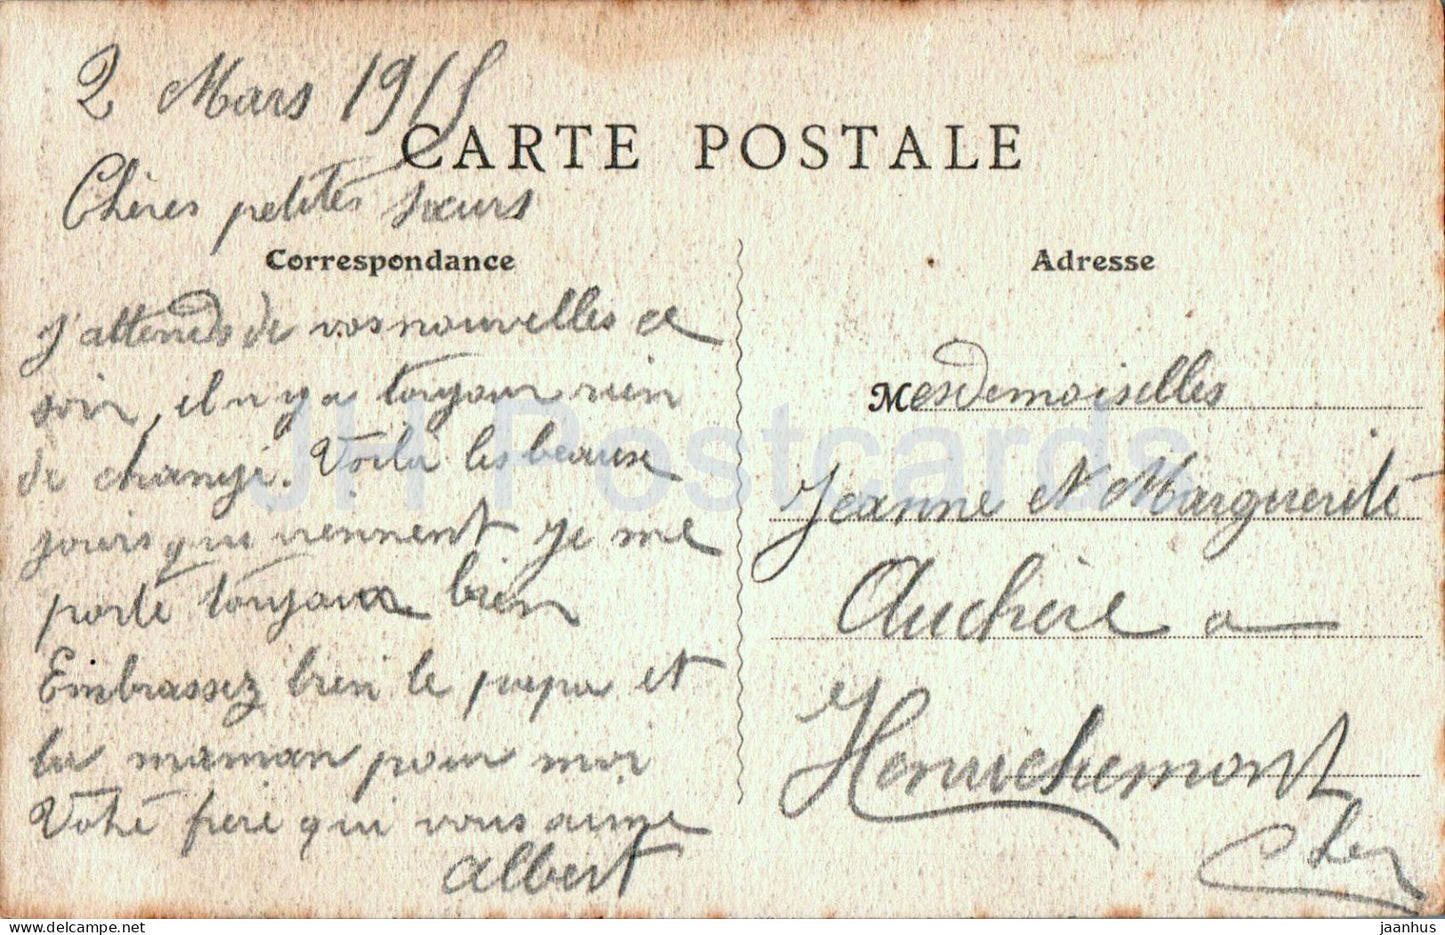 2 Mars 1915
CARTE POSTALE
Chères petites sœurs
Correspondance
J'attends de vos nouvelles ce
soir, il n'y a toujour rien
de changé. Voilà les beaux
jours qui viennent je me
porte toujours bien
Embrassez bien le papa et
la maman pour moi
Votre frere qui vous aime
Albert
Adresse
Mesdemoiselles
Jeanne et Marguerite
Auchère a
Henrichemont
Cher
JH Postcards
delcampe.net
jaanhus